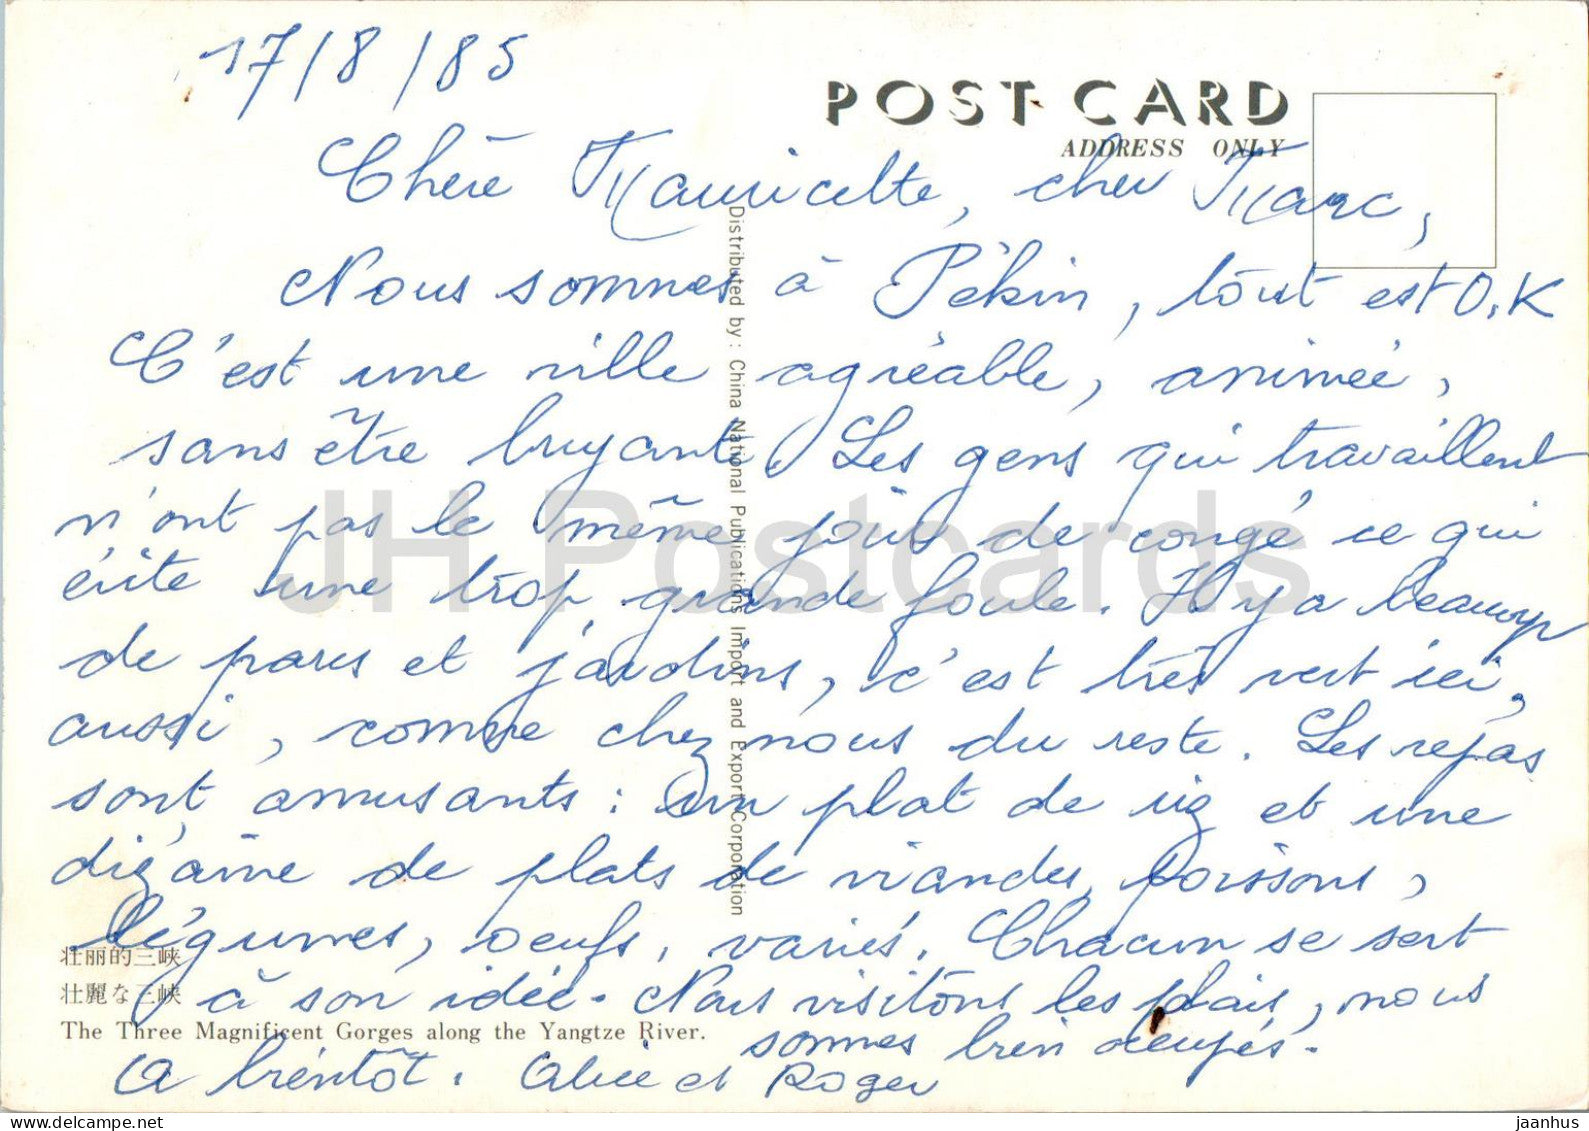 17/8/85
POST CARD
ADDRESS ONLY
Chère Mauricette, cher Marc,
Nous sommes à Pékin, tout est O.K
C'est une ville agréable, animée,
sans être bruyante. Les gens qui travaillent
n'ont pas le même jour de congé ce qui
évite une trop grande foule. Il y a beaucoup
de parcs et jardins, c'est très vert ici,
aussi, comme chez nous du reste. Les repas
sont amusants : un plat de riz et une
dizaine de plats de viandes, poissons,
légumes, oeufs, variés. Chacun se sert
à son idée. Nous visitons les palais, nous
sommes bien occupés.
A bientôt. Alice et Roger
Distributed by: China National Publications Import and Export Corporation
壮丽的三峡
壮麗な三峡
The Three Magnificent Gorges along the Yangtze River.
JH Postcards
jaanhus © www.delcampe.net